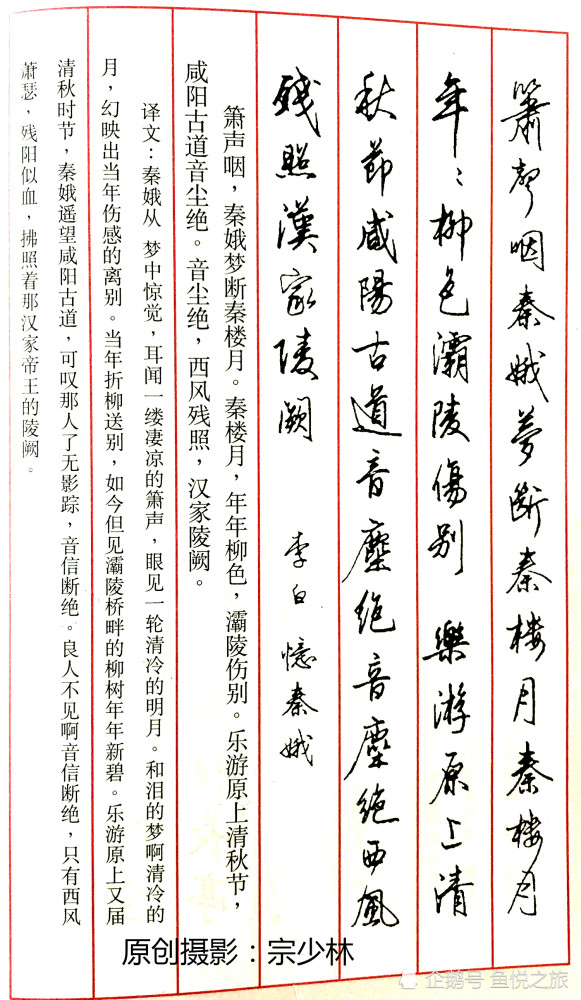 簫聲咽秦娥夢斷秦楼月秦楼月
年〻柳色灞陵傷别 樂游原上清
秋節咸陽古道音塵绝音塵绝西風
殘照漢家陵闕 李白憶秦娥
箫声咽，秦娥梦断秦楼月。秦楼月，年年柳色，灞陵伤别。乐游原上清秋节，
咸阳古道音尘绝。音尘绝，西风残照，汉家陵阙。
译文：秦娥从 梦中惊觉，耳闻一缕凄凉的箫声，眼见一轮清冷的明月。和泪的梦啊清冷的
月，幻映出当年伤感的离别。当年折柳送别，如今但见灞陵桥畔的柳树年年新碧。乐游原上又届
清秋时节，秦娥遥望咸阳古道，可叹那人了无影踪，音信断绝。良人不见啊音信断绝，只有西风
萧瑟，残阳似血，拂照着那汉家帝王的陵阙。
原创摄影：宗少林
企鹅号 鱼悦之旅